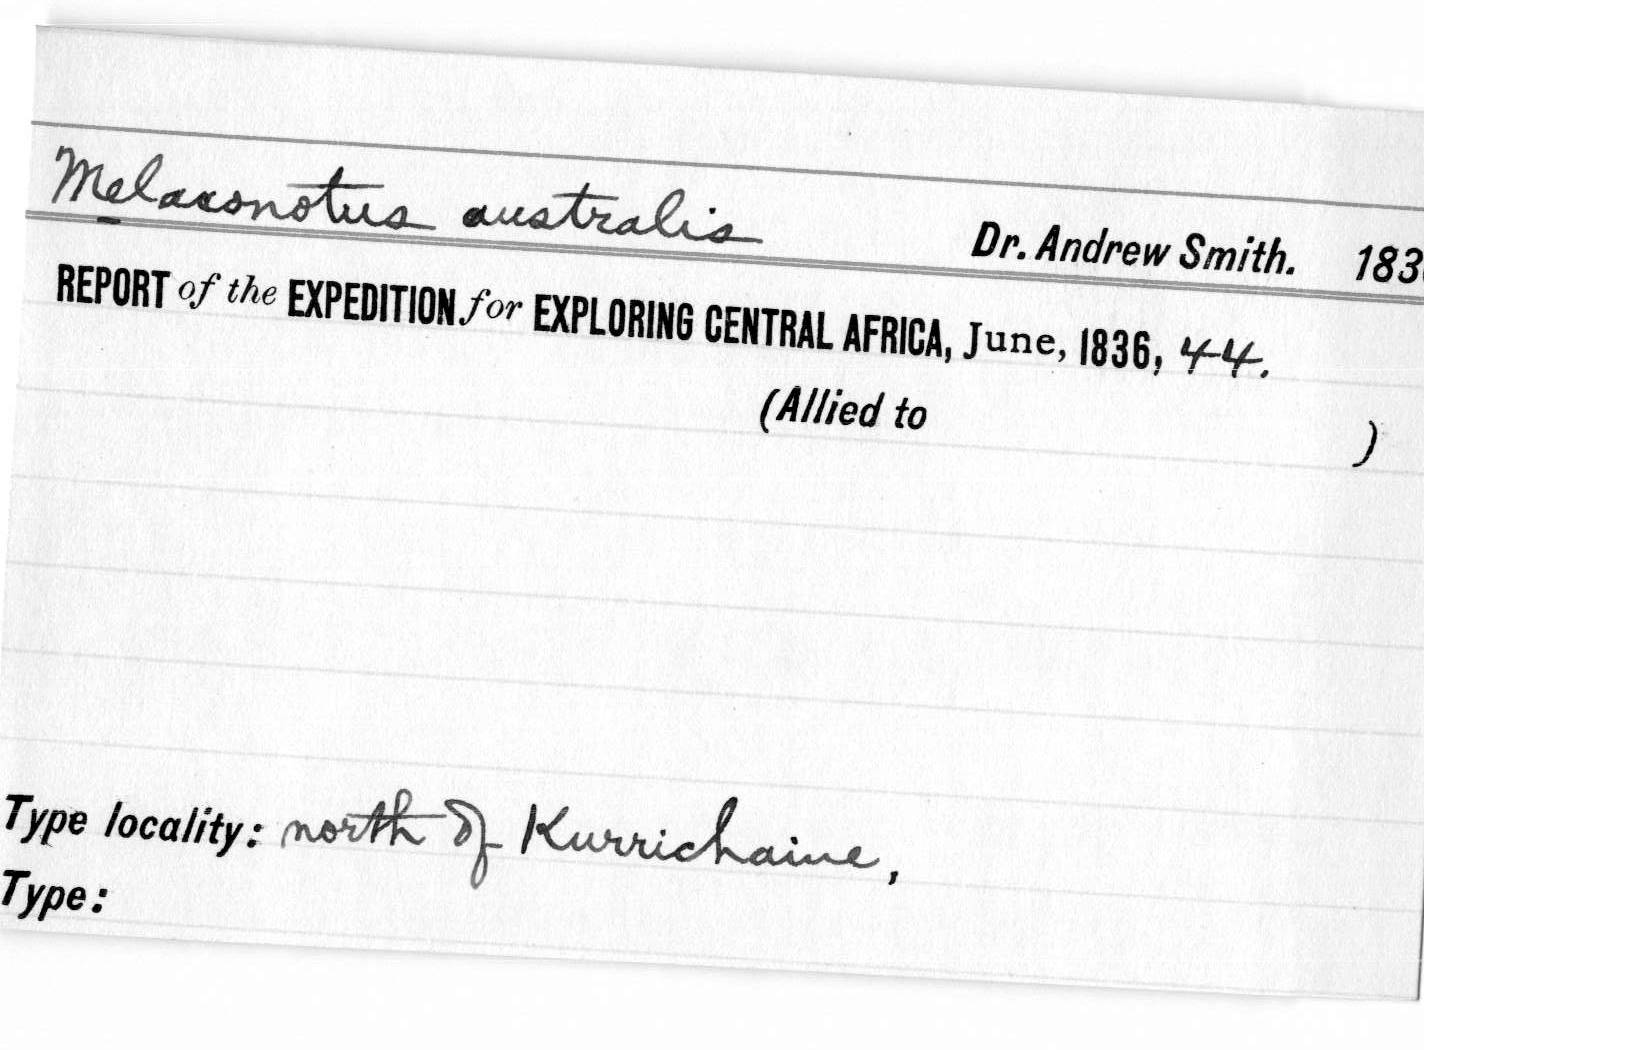 Melaconotus australis Dr. Andrew Smith. 183
REPORT of the EXPEDITION for EXPLORING CENTRAL AFRICA, June, 1836, 44.
(Allied to )
Type locality: north of Kurrichaine,
Type: